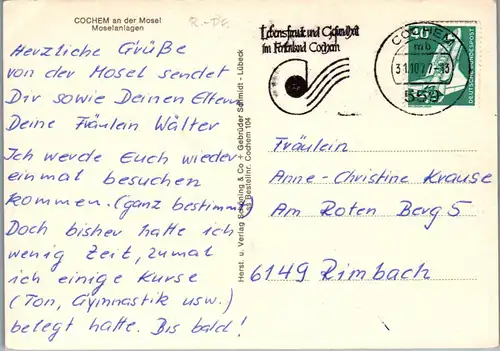 COCHEM an der Mosel
Moselanlagen
Herzliche Grüße
von der Mosel sendet
Dir sowie Deinen Eltern
Deine Fräulein Walter
Ich werde Euch wieder
einmal besuchen
kommen. (ganz bestimmt)
Doch bisher hatte ich
wenig Zeit, zumal
ich einige Kurse
(Ton, Gymnastik usw.)
belegt hatte. Bis bald!
Herst. u. Verlag Schöning & Co + Gebrüder Schmidt - Lübeck
Bestellnr. Cochem 104
Lebensfreude und Gesundheit
im Ferienland Cochem
COCHEM
mb
31.10.77-13
559
DEUTSCHE BUNDESPOST
Fräulein
Anne-Christine Krause
Am Roten Berg 5
6149 Rimbach